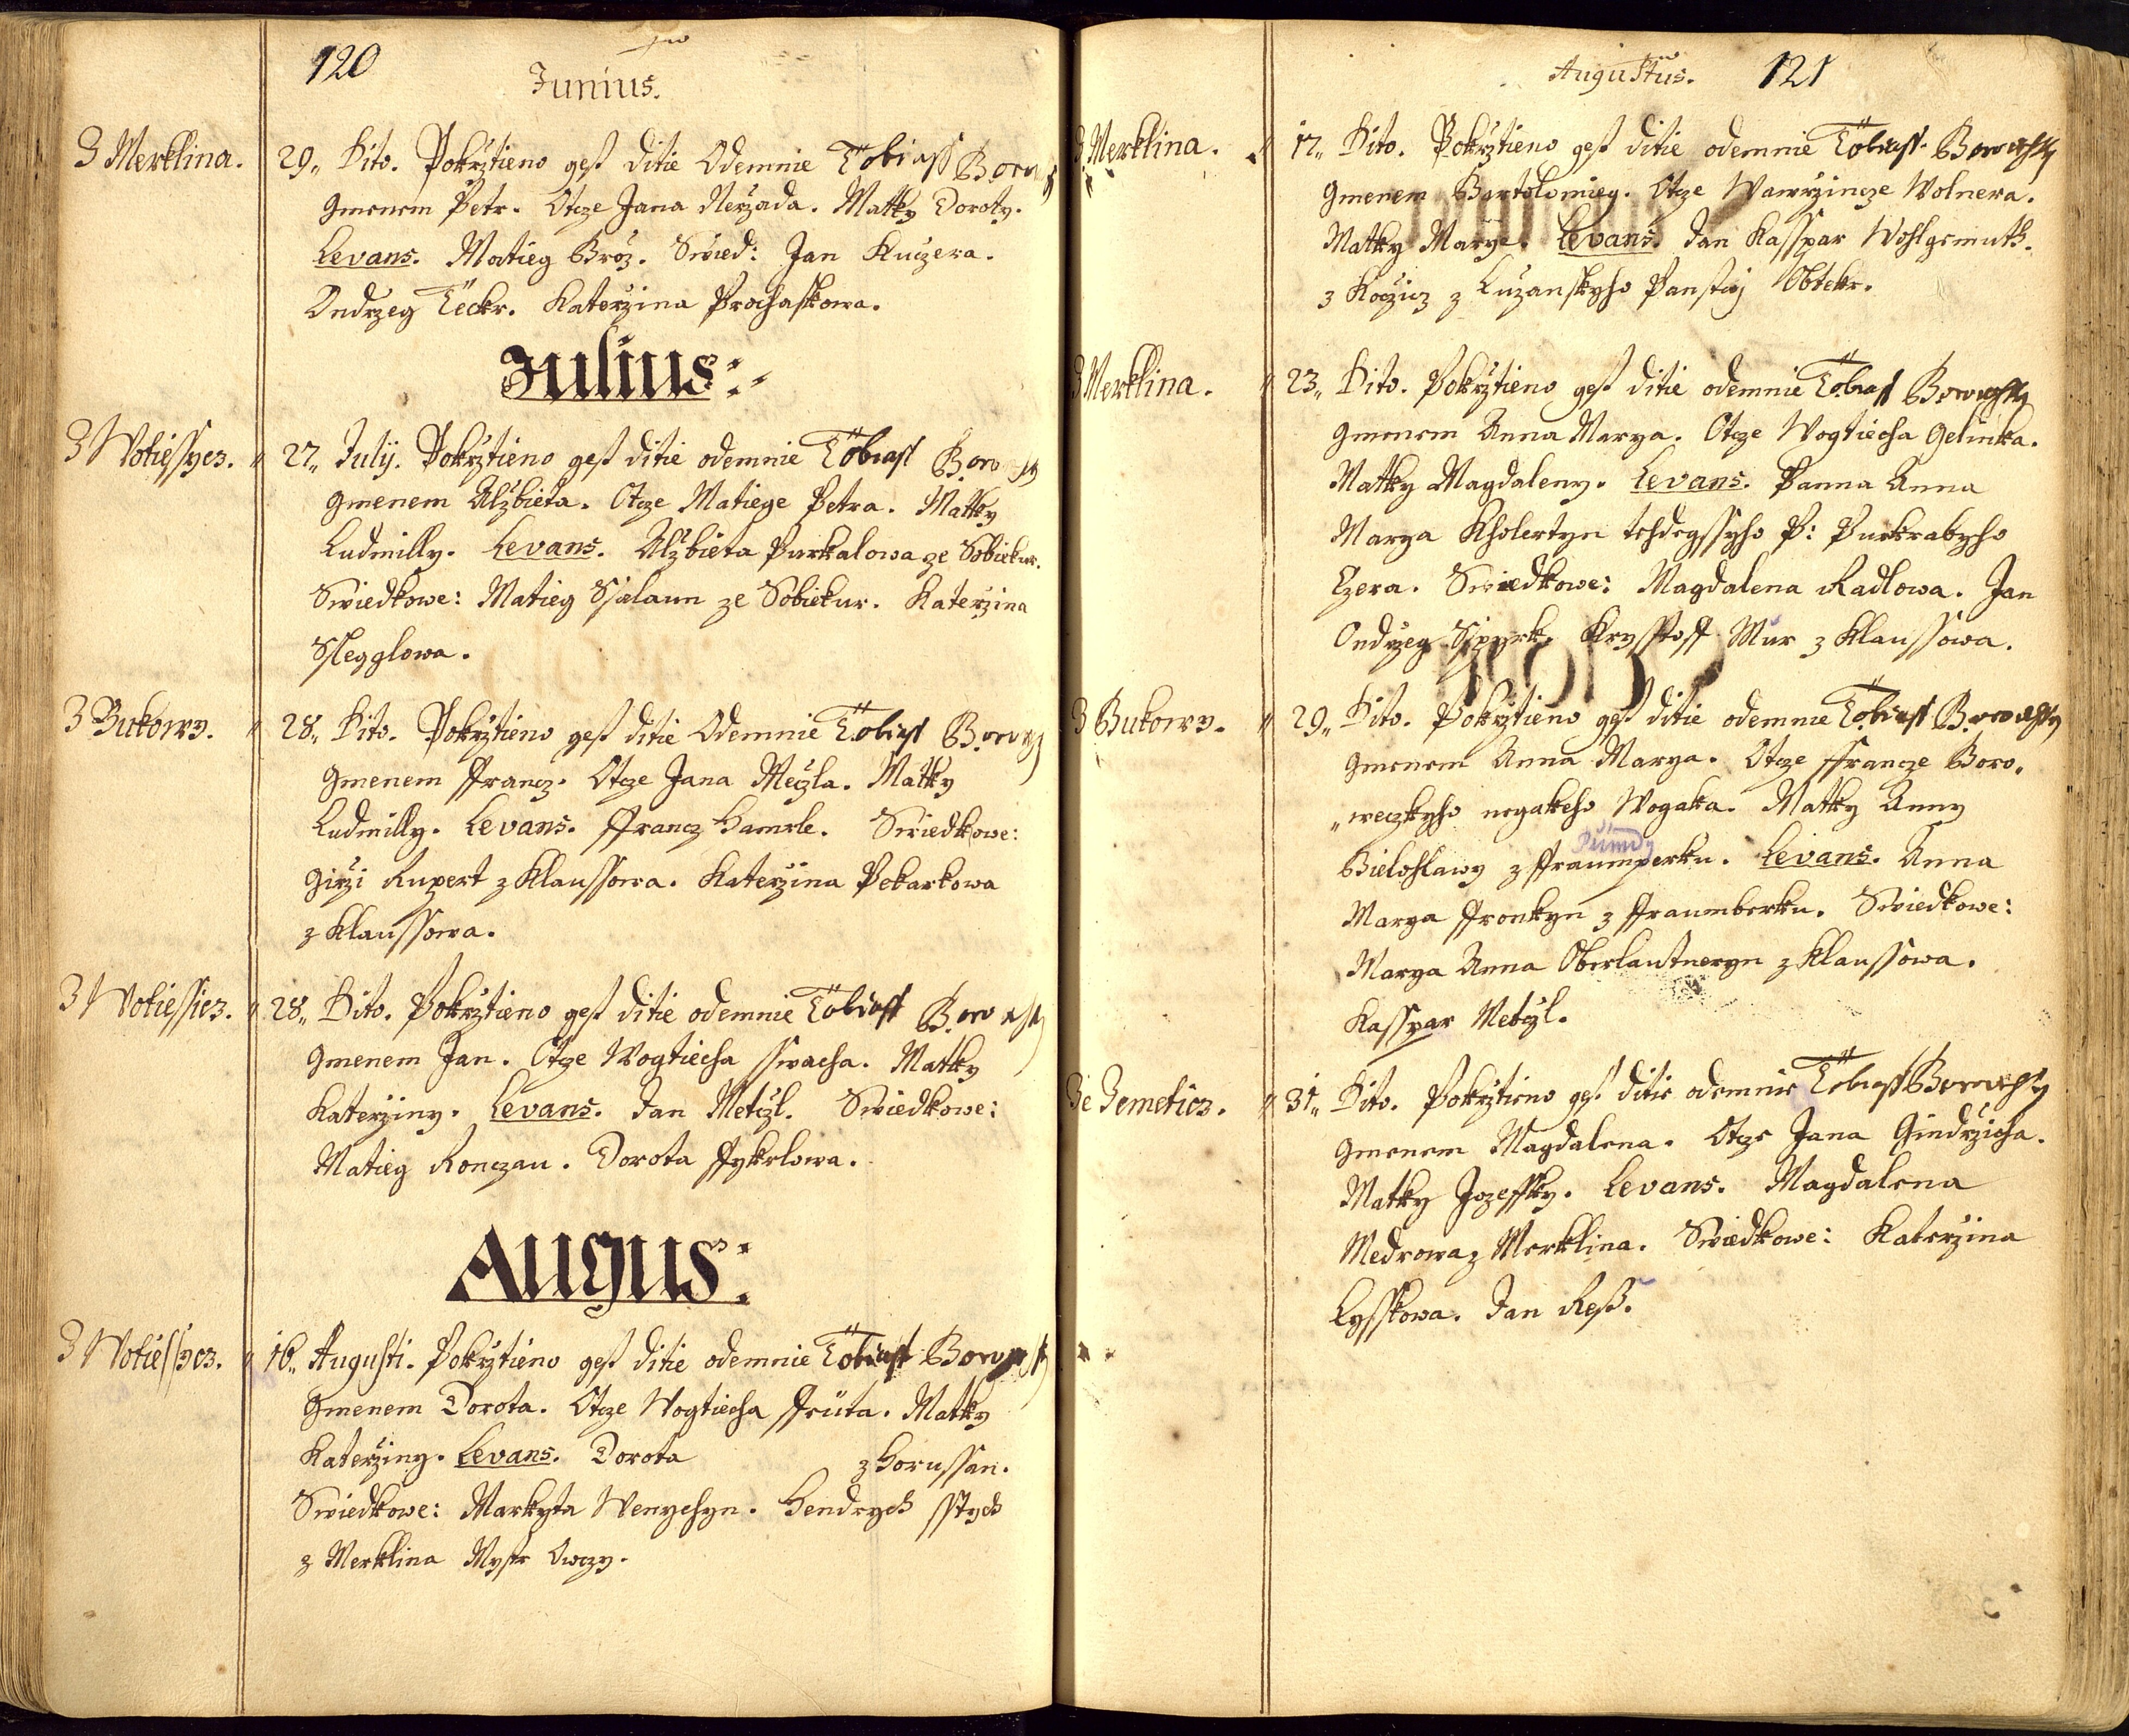 120
Junius.
Z Merklina.
29,, Dito. Pokrztieno gest ditie Odemnie Tobiass
Gmenem Petr. Otcze Jana Nerzada. Matky Doroty.
Levans. Matieg Broz. Swied: Jan Kuczera.
Ondrzeg Eckr. Katerzina Prochaskowa.
Julius:
Z Wotiessycz.
27,, Julij. Pokrztieno gest ditie odemnie Tobiass
Gmenem Alzbieta. Otcze Matiege Petra. Matky
Ludmilly. Levans. Alzbieta Purkalowa ze Sobiekur.
Swiedkowe: Matieg Sjalaun ze Sobiekur. Katerzina
Slegglowa.
Z Bukowy.
28,, Dito. Pokrztieno gest ditie Odemnie Tobiass
Gmenem ffrancz. Otcze Jana Meczla. Matky
Ludmilly. Levans. ffrancz Hamrle. Swiedkowe:
Girzi Rupert z Klaussowa. Katerzina Pekarkowa
z Klaussowa.
Z Wotiessicz.
28,, Dito. Pokrztieno gest ditie odemnie Tobiass
Gmenem Jan. Otcze Wogtiecha sswacha. Matky
Katerziny. Levans. Jan Metczl. Swiedkowe:
Matieg Ronczau. Dorota ffykrlowa.
Augus:
Z Wotiessycz.
16,, Augusti. Pokrztieno gest ditie odemnie Tobiass
Gmenem Dorota. Otcze Wogtiecha ffruta. Matky
Katerziny. Levans. Dorota z Horussan.
Swiedkowe: Markyta Wenychyn. Hendrych
z Merklina Mystr Owczy.
Augustus. 121
Z Merklina.
17,, Dito. Pokrztieno gest ditie odemnie Tobiass Borowesky
Gmenem Bartolomieg. Otcze Wawrzincze Wolnera.
Matky Marye. Levans. Jan Kasspar Wohlgemuth.
z Koczicz z Luzanskyho Panstwj Obtekr.
Z Merklina.
23,, Dito. Pokrztieno gest ditie odemnie Tobiass Borowesky
Gmenem Anna Marya. Otcze Wogtiecha Gelinka.
Matky Magdaleny. Levans. Panna Anna
Marya Kholertyn tehdegssyho P: Purkrabyho
Czera. Swiedkowe: Magdalena Radlowa. Jan
Ondrzeg Krysstoff Mur z Klaussowa.
Z Bukowy.
29,, Dito. Pokrztieno gest ditie odemnie Tobiass Borowesky
Gmenem Anna Marya. Otcze ffrancze Boro,
,,weczkyho negakeho Wogaka. Matky Anny
Bielohlawy z ffraumperku. Levans. Anna
Marya ffronkyn z ffraumberku. Swiedkowe:
Marya Anna Oberlautneryn z Klaussowa.
Kasspar Metczl.
Ze Zemeticz.
31,, Dito. Pokrztieno gest ditie odemnie Tobiass Borowesky
Gmenem Magdalena. Otcze Jana Gindrzicha.
Matky Jozeffky. Levans. Magdalena
Medrowa z Merklina. Swiedkowe: Katerzina
Lysskowa. Jan Ress.